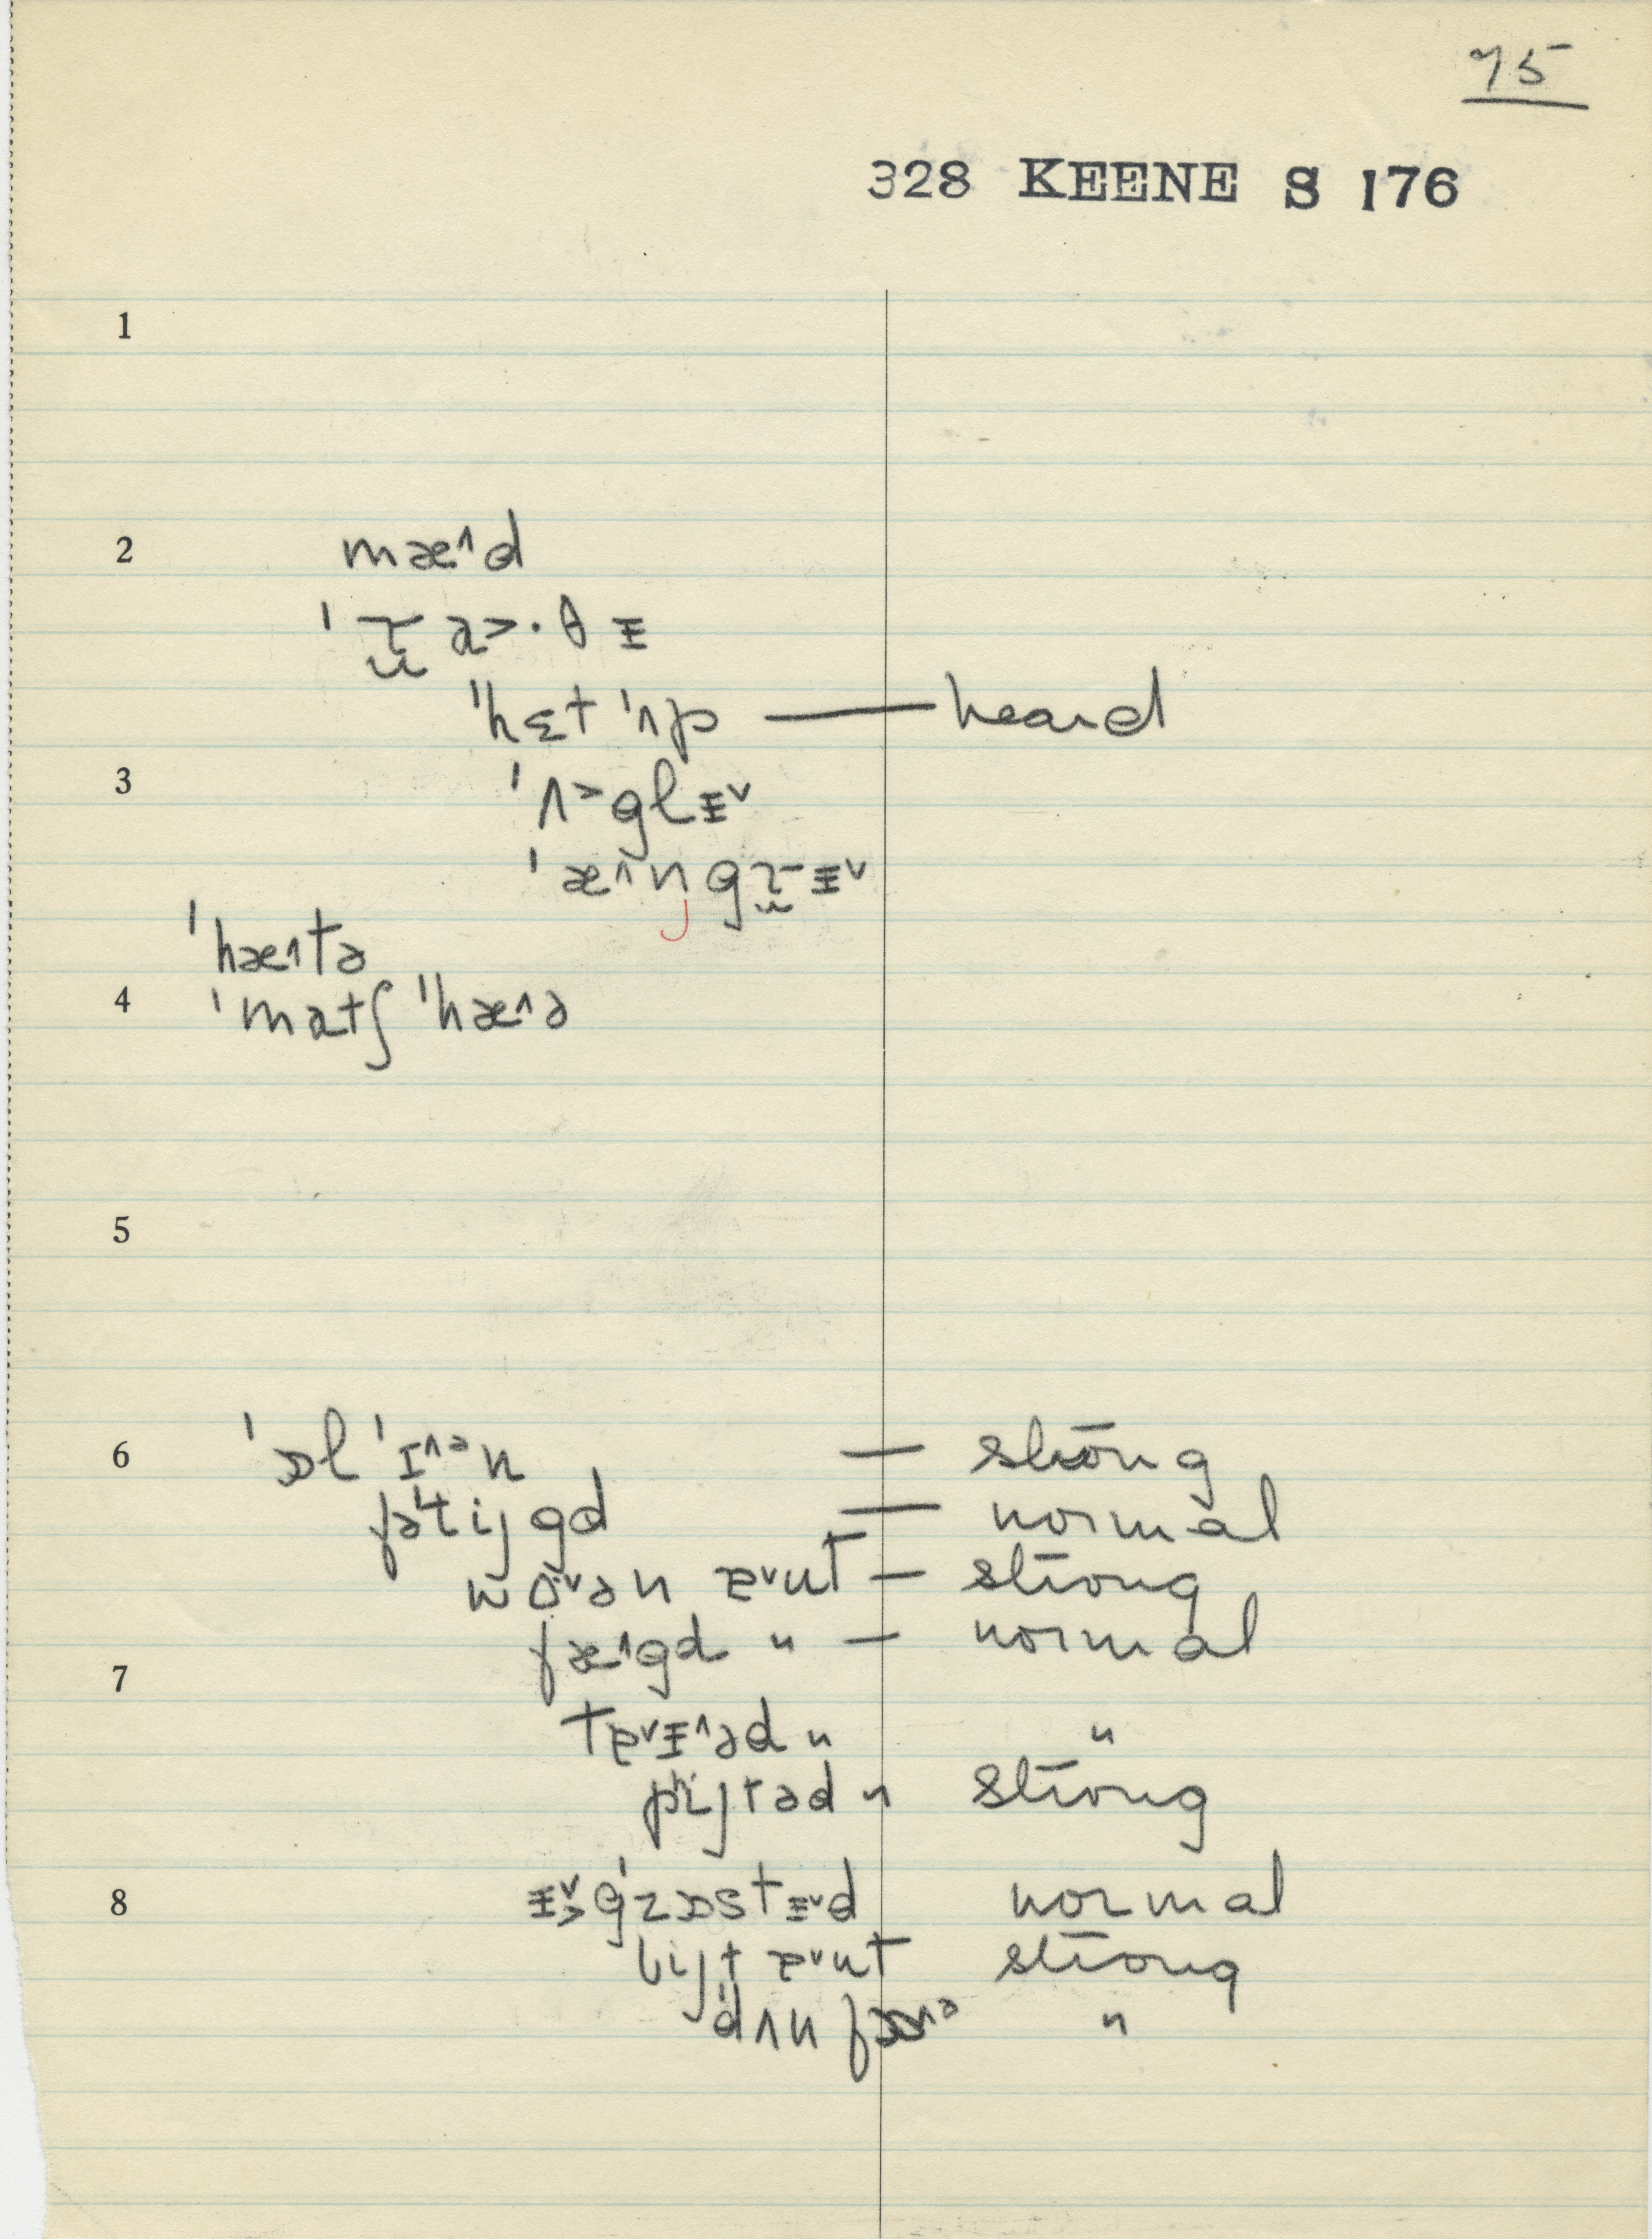 75
328 KEENE S 176
1
2 mæ˄d
ˈɹ̯a>·θɪ
ˈhɛt ˈʌp — heard
3 ˈʌ>glɪ˅
ˈæ˄ŋgɹ̯ɪ˅
ˈhæ˄tə
4 ˈmatʃ ˈhæ˄ə
5
6 ˈɒl ˈɪ˄ᵊn — strōng
fəˈtijgd — normal
wɔ˅ən ɐ˅ut — strong
fæ˄gd " — normal
7
tɐ˅ɪ˄əd " "
pijtəd " strong
8 ɪ˅>gˈzɒstɪ˅d normal
bijt ɐ˅ut strong
ˈdʌn fɒ˄ᵊ "